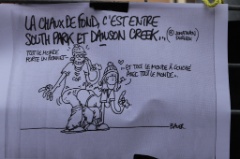 LA CHAUX DE FOND, C'EST ENTRE
SOUTH PARK ET DAWSON CREEK...
TOUT LE MONDE
PORTE UN BONNET
ET TOUT LE MONDE A COUCHÉ
AVEC TOUT LE MONDE...